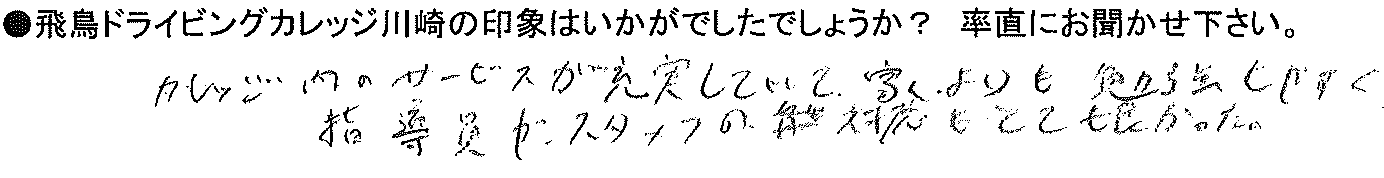 ●飛鳥ドライビングカレッジ川崎の印象はいかがでしたでしょうか？ 率直にお聞かせ下さい。
カレッジ内のサービスが充実していて、家よりも勉強しやすく
指導員が、スタッフの対応もとても良かった。